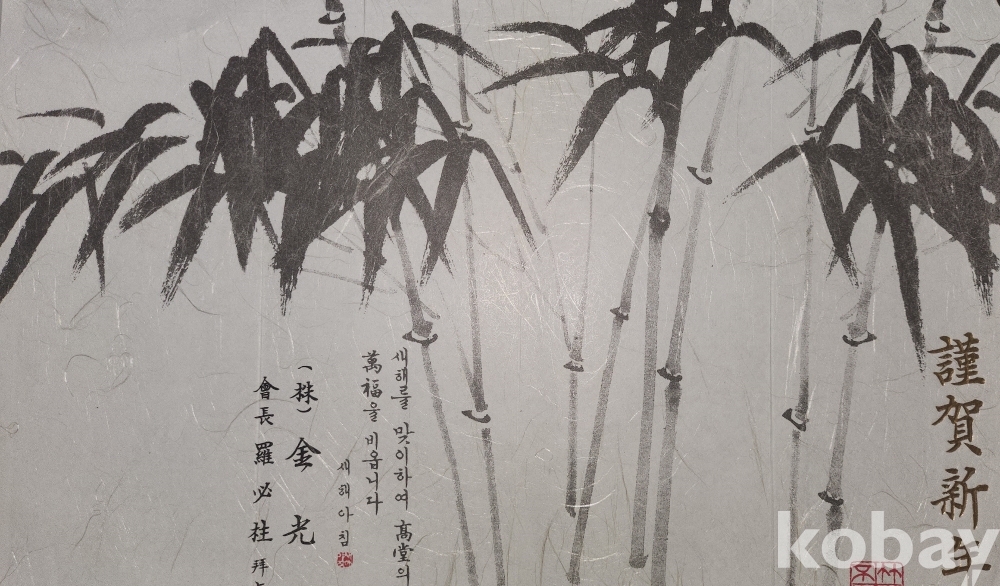 謹賀新年
새해를 맞이하여 高堂의
萬福을 비옵니다
새해아침
(株) 金光
會長 羅必柱 拜
kobay